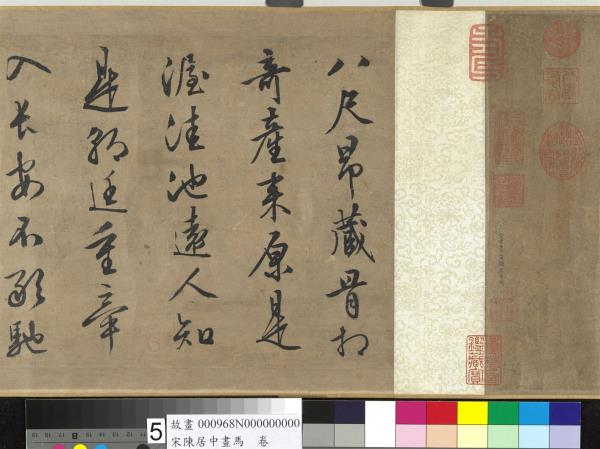 八尺昂藏骨相
奇產來原是
渥洼池遠人知
是朝廷重牽
入長安不敢馳
5
故畫 000968N000000000
宋陳居中畫馬 卷